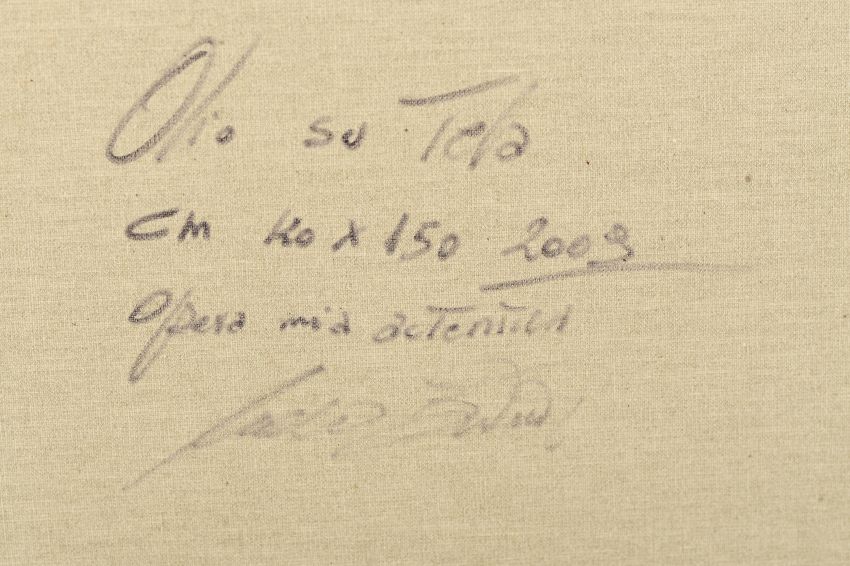 Olio su Tela
cm 140 x 150 2009
Opera mia autentica